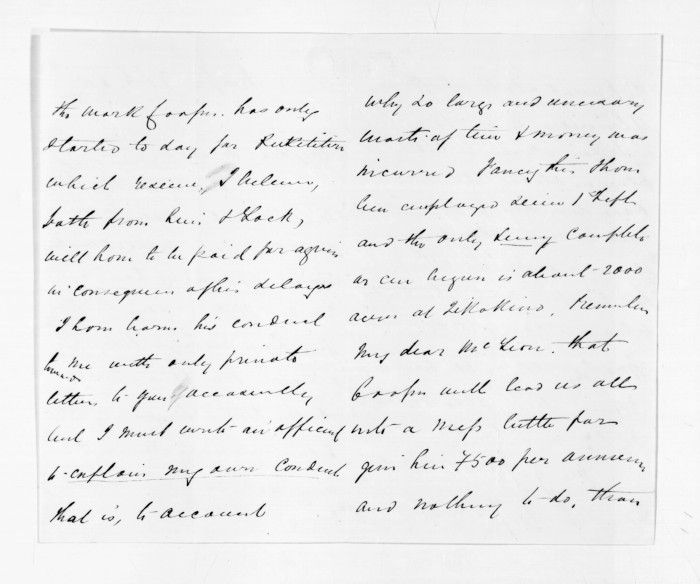 the mark Cooper has only
started to day for Ruketitiri
which reserve, I believe,
both from him & Lock,
will have to be paid for again
in consequence of his delays
I have borne his conduct
towards me with only private
letters to you occasionally,
but I must write an official
to explain my own conduct
that is, to account
why so large and unnecessary
waste of time & money was
incurred Fancy his
been employed since I left
and the only survey complete
or even begun is about 2000
acres at Tikokino. Remember
My dear McLean. that
Cooper will lead us all
into a mess better far
give him £500 per annum
and nothing to do, than